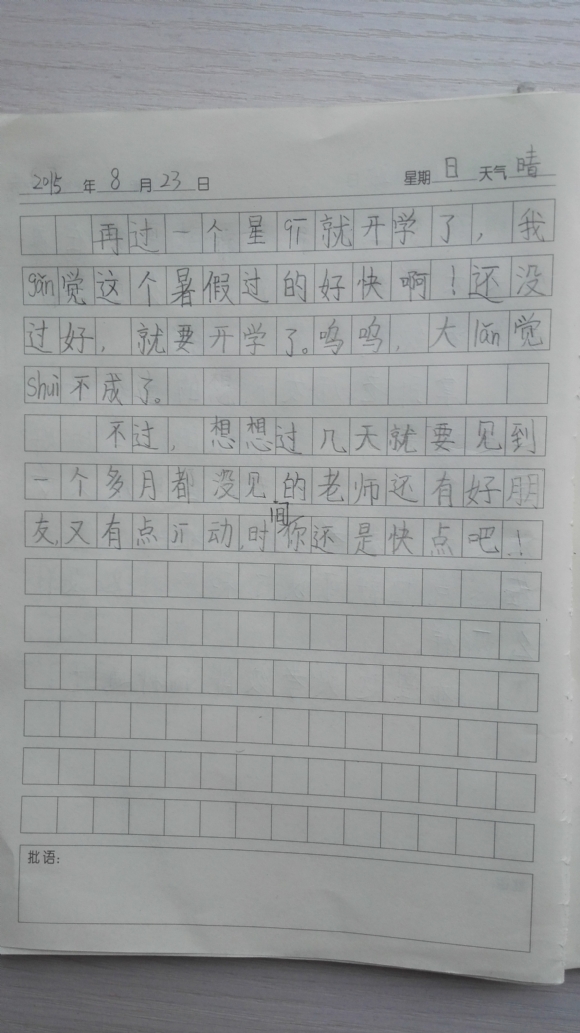 2015 年 8 月 23 日 星期 日 天气 晴
再过一个星qī就开学了，我
gǎn觉这个暑假过的好快啊！还没
过好，就要开学了。呜呜，大lǎn觉
Shuì不成了。
不过，想想过几天就要见到
一个多月都没见的老师还有好朋
友，又有点jī动，时间你还是快点吧！
批语：